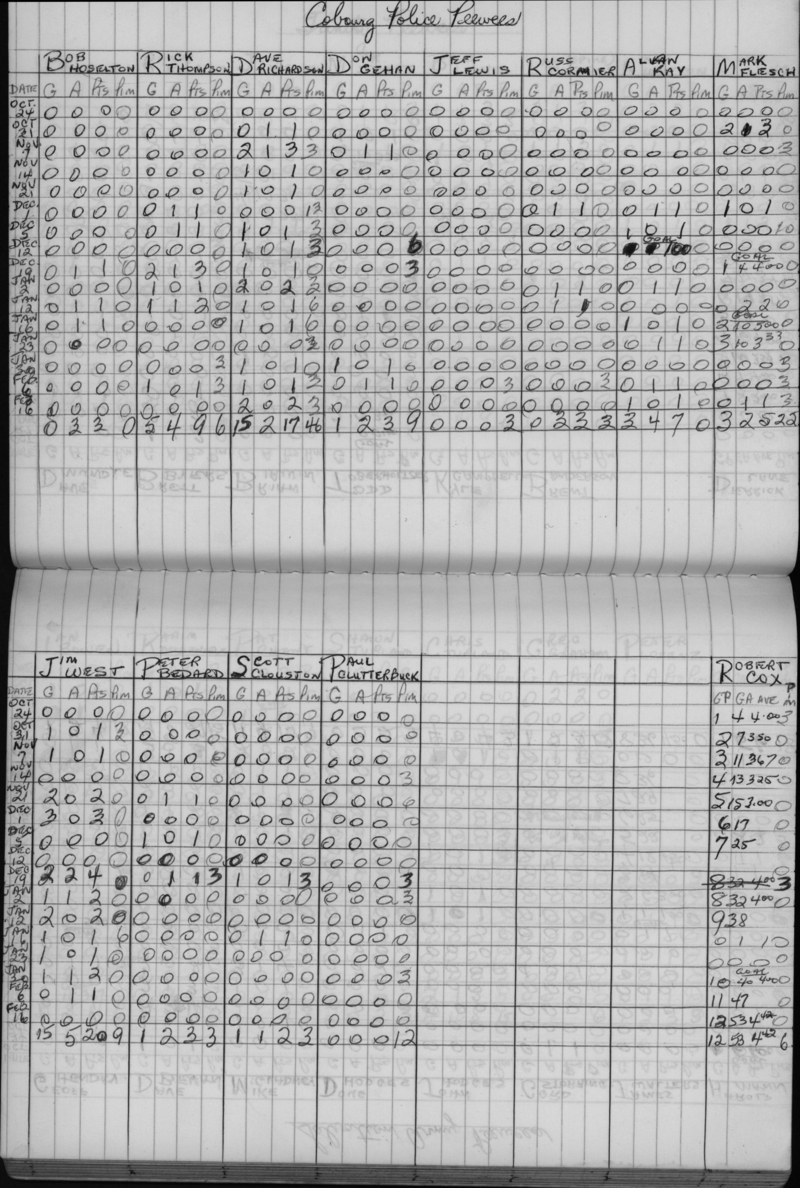 Cobourg Police Peewees
BOB HOSELTON RICK THOMPSON DAVE RICHARDSON DON GEHAN JEFF LEWIS RUSS CORMIER ALLAN KAY MARK FLESCH
DATE G A Pts Pim G A Pts Pim G A Pts Pim G A Pts Pim G A Pts Pim G A Pts Pim G A Pts Pim G A Pts Pim
OCT. 24 0 0 0 0 0 0 0 0 0 0 0 0 0 0 0 0 0 0 0 0 0 0 0 0 0 0 0 0 0 0 0 0
OCT 0 0 0 0 0 0 0 0 0 1 1 0 0 0 0 0 0 0 0 0 0 0 0 0 0 0 0 0
NOV 0 0 0 0 0 0 0 0 2 1 3 3 0 1 1 0 0 0 0 0 0 0 0 0 0 0 0 0 0 0 0 3
NOV 14 0 0 0 0 0 0 0 0 1 0 1 0 0 0 0 0 0 0 0 0 0 0 0 0 0 0 0 0 0 0 0 0
NOV 21 0 0 0 0 0 0 0 0 1 0 1 0 0 0 0 0 0 0 0 0 0 0 0 0 0 0 0 0 0 0 0 0
DEC. 1 0 0 0 0 0 1 1 0 0 0 0 0 0 0 0 0 0 0 0 1 1 0 0 1 1 0 1 0 1 0
DEC 5 0 0 0 0 0 1 1 0 1 0 1 3 0 0 0 0 0 0 0 0 0 0 0 0 1 0 1 0
DEC 12 0 0 0 0 0 0 0 0 1 0 1 3 0 0 0 6 0 0 0 0 0 0 0 0 GOAL 0 0 0 0
DEC. 19 0 1 1 0 2 1 3 0 1 0 1 0 0 0 0 3 0 0 0 0 0 0 0 0 0 0 0 0 GOAL
JAN 2 0 0 0 0 1 0 1 0 2 0 2 2 0 0 0 0 0 0 0 0 0 1 1 0 0 1 1 0
JAN 12 0 1 1 0 1 1 2 0 1 0 1 6 0 0 0 0 0 0 0 0 0 1 0 0 0 0 0
JAN 16 0 1 1 0 0 0 0 0 1 0 1 6 0 0 0 0 0 0 0 0 0 0 0 0 1 0 1 0 GOAL
JAN 23 0 0 0 0 0 0 0 0 0 0 0 3 0 0 0 0 0 0 0 0 0 0 0 0 0 1 1 0
JAN 30 0 0 0 0 0 0 0 3 1 0 1 0 1 0 1 0 0 0 0 0 0 0 0 0 0 0 0 0 0 0 0 3
FEB. 6 0 0 0 0 1 0 1 3 1 0 1 3 0 1 1 0 0 0 0 3 0 0 0 3 0 1 1 0 0 0 0 3
FEB 16 0 0 0 0 0 0 0 0 2 0 2 3 0 0 0 0 0 0 0 0 0 0 0 0 1 0 1 0 0 1 1 3
0 3 3 0 5 4 9 6 15 2 17 46 1 2 3 9 0 0 0 3 0 3 3 3 3 4 7 0 3 2 5 22
JIM WEST PETER BEDARD SCOTT CLOUSTON PAUL CLUTTERBUCK ROBERT COX
DATE G A Pts Pim G A Pts Pim G A Pts Pim G A Pts Pim GP GA AVE Pim
OCT 24 0 0 0 0 0 0 0 0 0 0 0 0 0 0 0 0 1 4 4.00 3
OCT 31 1 0 1 3 0 0 0 0 0 0 0 0 0 0 0 0 2 7 350 0
NOV 7 1 0 1 0 0 0 0 0 0 0 0 0 0 0 0 0 3 11 367 0
NOV 14 0 0 0 0 0 0 0 0 0 0 0 0 0 0 0 3 4 13 325 0
NOV 21 2 0 2 0 0 1 1 0 0 0 0 0 0 0 0 5 15 3.00 0
DEC 1 3 0 3 0 0 0 0 0 0 0 0 0 0 0 0 0 6 17 0
DEC 5 0 0 0 0 1 0 1 0 0 0 0 0 0 0 0 0 7 25 0
DEC 12 0 0 0 0 0 0 0 0 0 0 0 0 0 0 0 0
DEC 19 2 2 4 0 0 1 1 3 1 0 1 3 0 0 0 3 8 32 4.00 3
JAN 2 1 1 2 0 0 0 0 0 0 0 0 0 0 0 0 3 8 32 400 0
JAN 12 2 0 2 0 0 0 0 0 0 0 0 0 0 0 0 0 9 38
JAN 1 0 1 6 0 0 0 0 0 1 1 0 0 0 0 0 0 1 1 0
JAN 23 1 0 1 0 0 0 0 0 0 0 0 0 0 0 0 0 0 0 0 0
JAN 30 1 1 2 0 0 0 0 0 0 0 0 0 0 0 0 3 GOAL 10 40 400
FEB. 6 0 1 1 0 0 0 0 0 0 0 0 0 0 0 0 0 11 47 0
FEB. 16 0 0 0 0 0 0 0 0 0 0 0 0 0 0 0 0 12 53 442 0
15 5 20 9 1 2 3 3 1 1 2 3 0 0 0 12 12 53 442 6